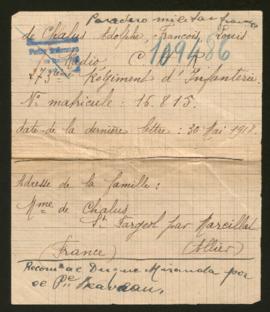 Paradero militar frances
de Chalus Adolphe, François, Louis
Radio
109486
273ème Régiment d'Infanterie
N° matricule : 16.815.
date de la dernière lettre : 30 Mai 1918.
Adresse de la famille :
Mme de Chalus
St Fargeol par Marcillat
(France) (Allier)
Recomdae Duque Miranda por